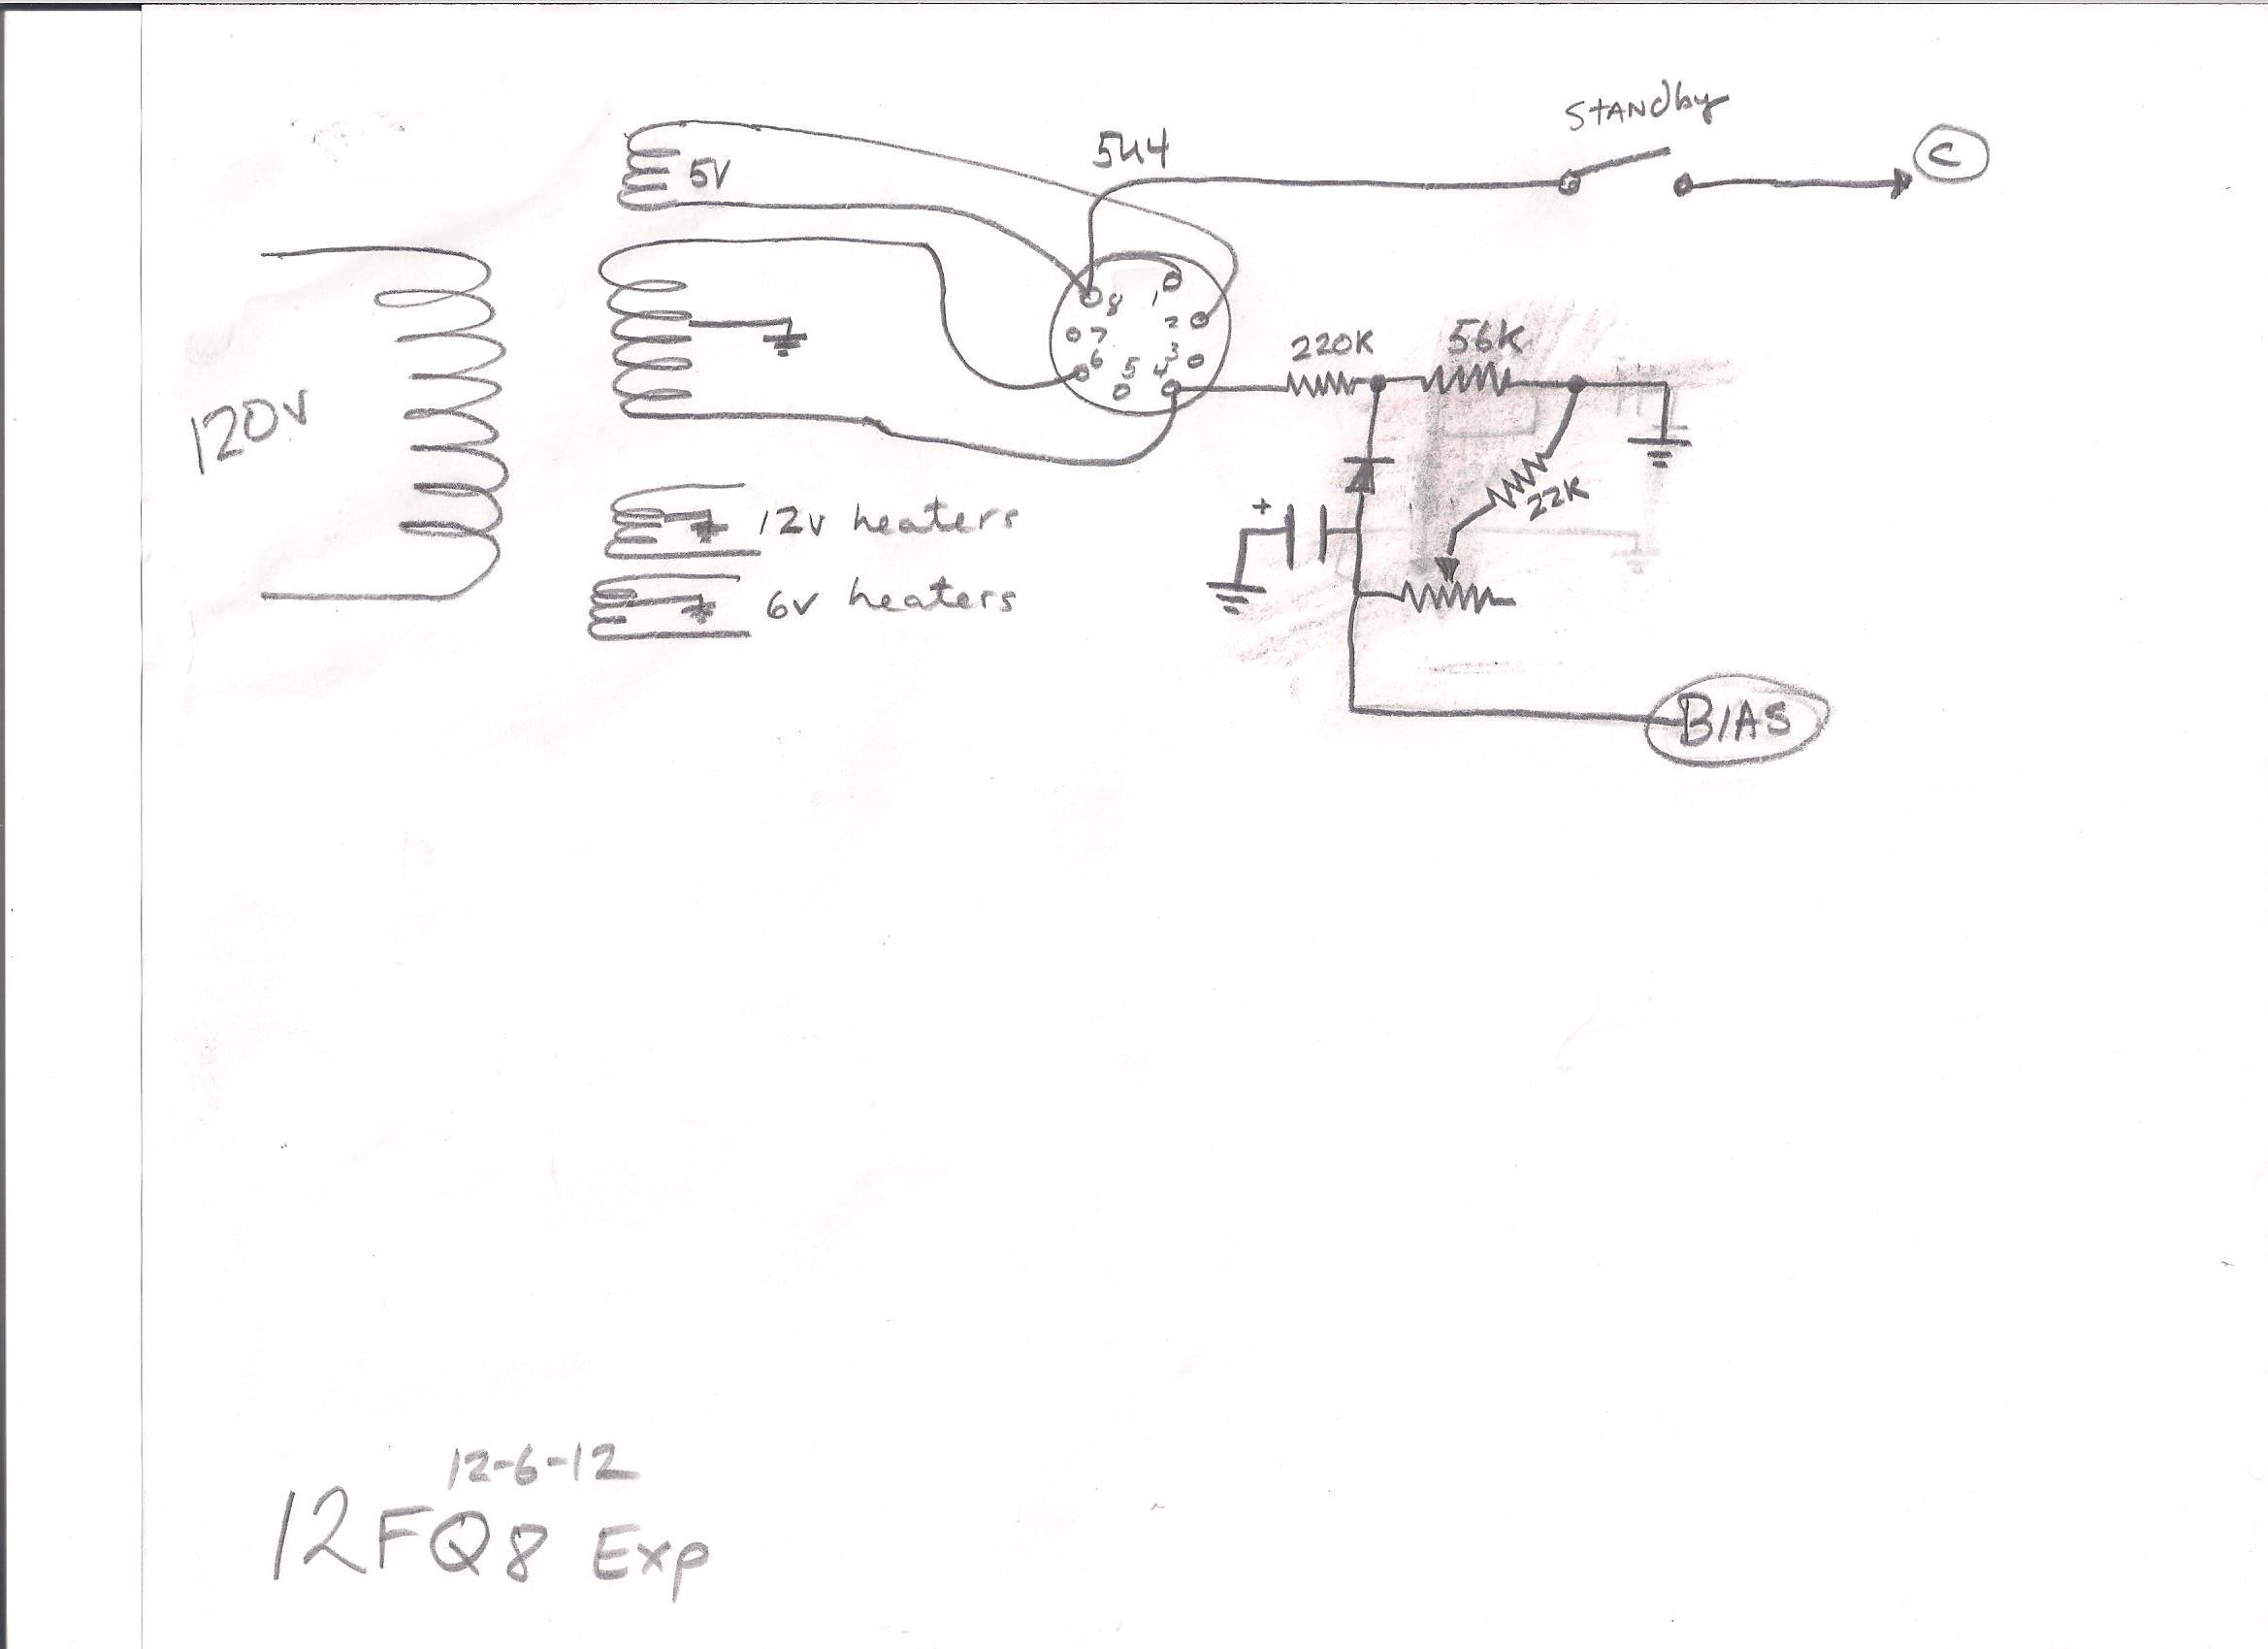 STANDby
C
5U4
5V
8 1
7 2
6 5 4 3
220K 56K
120V
22K
+
12v heaters
6v heaters
BIAS
12-6-12
12FQ8 Exp